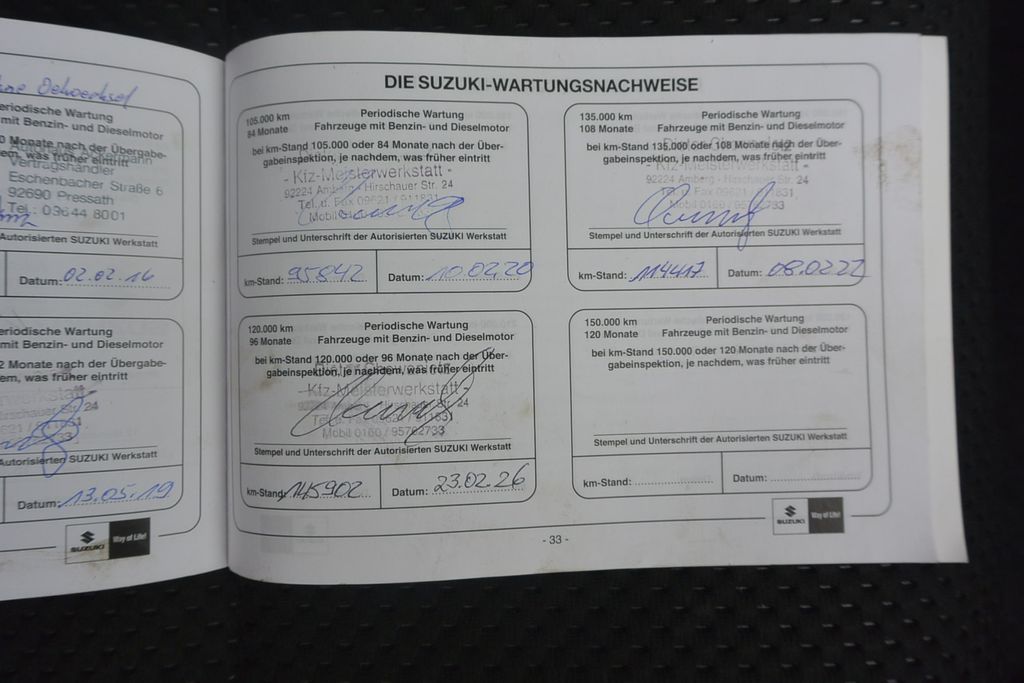 Oelwechsel
eriodische Wartung
mit Benzin- und Dieselmotor
0 Monate nach der Übergabe-
em, was früher eintritt
Vertragshändler
Eschenbacher Straße 6
92690 Pressath
Tel.: 09644 8001
Autorisierten SUZUKI Werkstatt
Datum: 02.02.16
eriodische Wartung
mit Benzin- und Dieselmotor
2 Monate nach der Übergabe-
em, was früher eintritt
rwerkstatt -
rschauer Str. 24
621 / 911831
33
Autorisierten SUZUKI Werkstatt
Datum: 13.05.19
SUZUKI Way of Life!
DIE SUZUKI-WARTUNGSNACHWEISE
105.000 km
84 Monate
Periodische Wartung
Fahrzeuge mit Benzin- und Dieselmotor
bei km-Stand 105.000 oder 84 Monate nach der Über-
gabeinspektion, je nachdem, was früher eintritt
- Kfz-Meisterwerkstatt -
92224 Amberg - Hirschauer Str. 24
Tel. u. Fax 09621 / 911831
Mobil
Stempel und Unterschrift der Autorisierten SUZUKI Werkstatt
km-Stand: 95842
Datum: 10.02.20
135.000 km
108 Monate
Periodische Wartung
Fahrzeuge mit Benzin- und Dieselmotor
bei km-Stand 135.000 oder 108 Monate nach der Über-
gabeinspektion, je nachdem, was früher eintritt
- Kfz-Meisterwerkstatt -
92224 Amberg - Hirschauer Str. 24
Tel. u. Fax 09621 / 911831
Mobil 0160 / 95762733
Stempel und Unterschrift der Autorisierten SUZUKI Werkstatt
km-Stand: 114417
Datum: 08.02.22
120.000 km
96 Monate
Periodische Wartung
Fahrzeuge mit Benzin- und Dieselmotor
bei km-Stand 120.000 oder 96 Monate nach der Über-
gabeinspektion, je nachdem, was früher eintritt
- Kfz-Meisterwerkstatt -
92224 Amberg - Hirschauer Str. 24
Tel. u. Fax 09621 / 911831
Mobil 0160 / 95762733
Stempel und Unterschrift der Autorisierten SUZUKI Werkstatt
km-Stand: 145902
Datum: 23.02.26
150.000 km
120 Monate
Periodische Wartung
Fahrzeuge mit Benzin- und Dieselmotor
bei km-Stand 150.000 oder 120 Monate nach der Über-
gabeinspektion, je nachdem, was früher eintritt
Stempel und Unterschrift der Autorisierten SUZUKI Werkstatt
km-Stand:
Datum:
SUZUKI Way of Life!
- 33 -